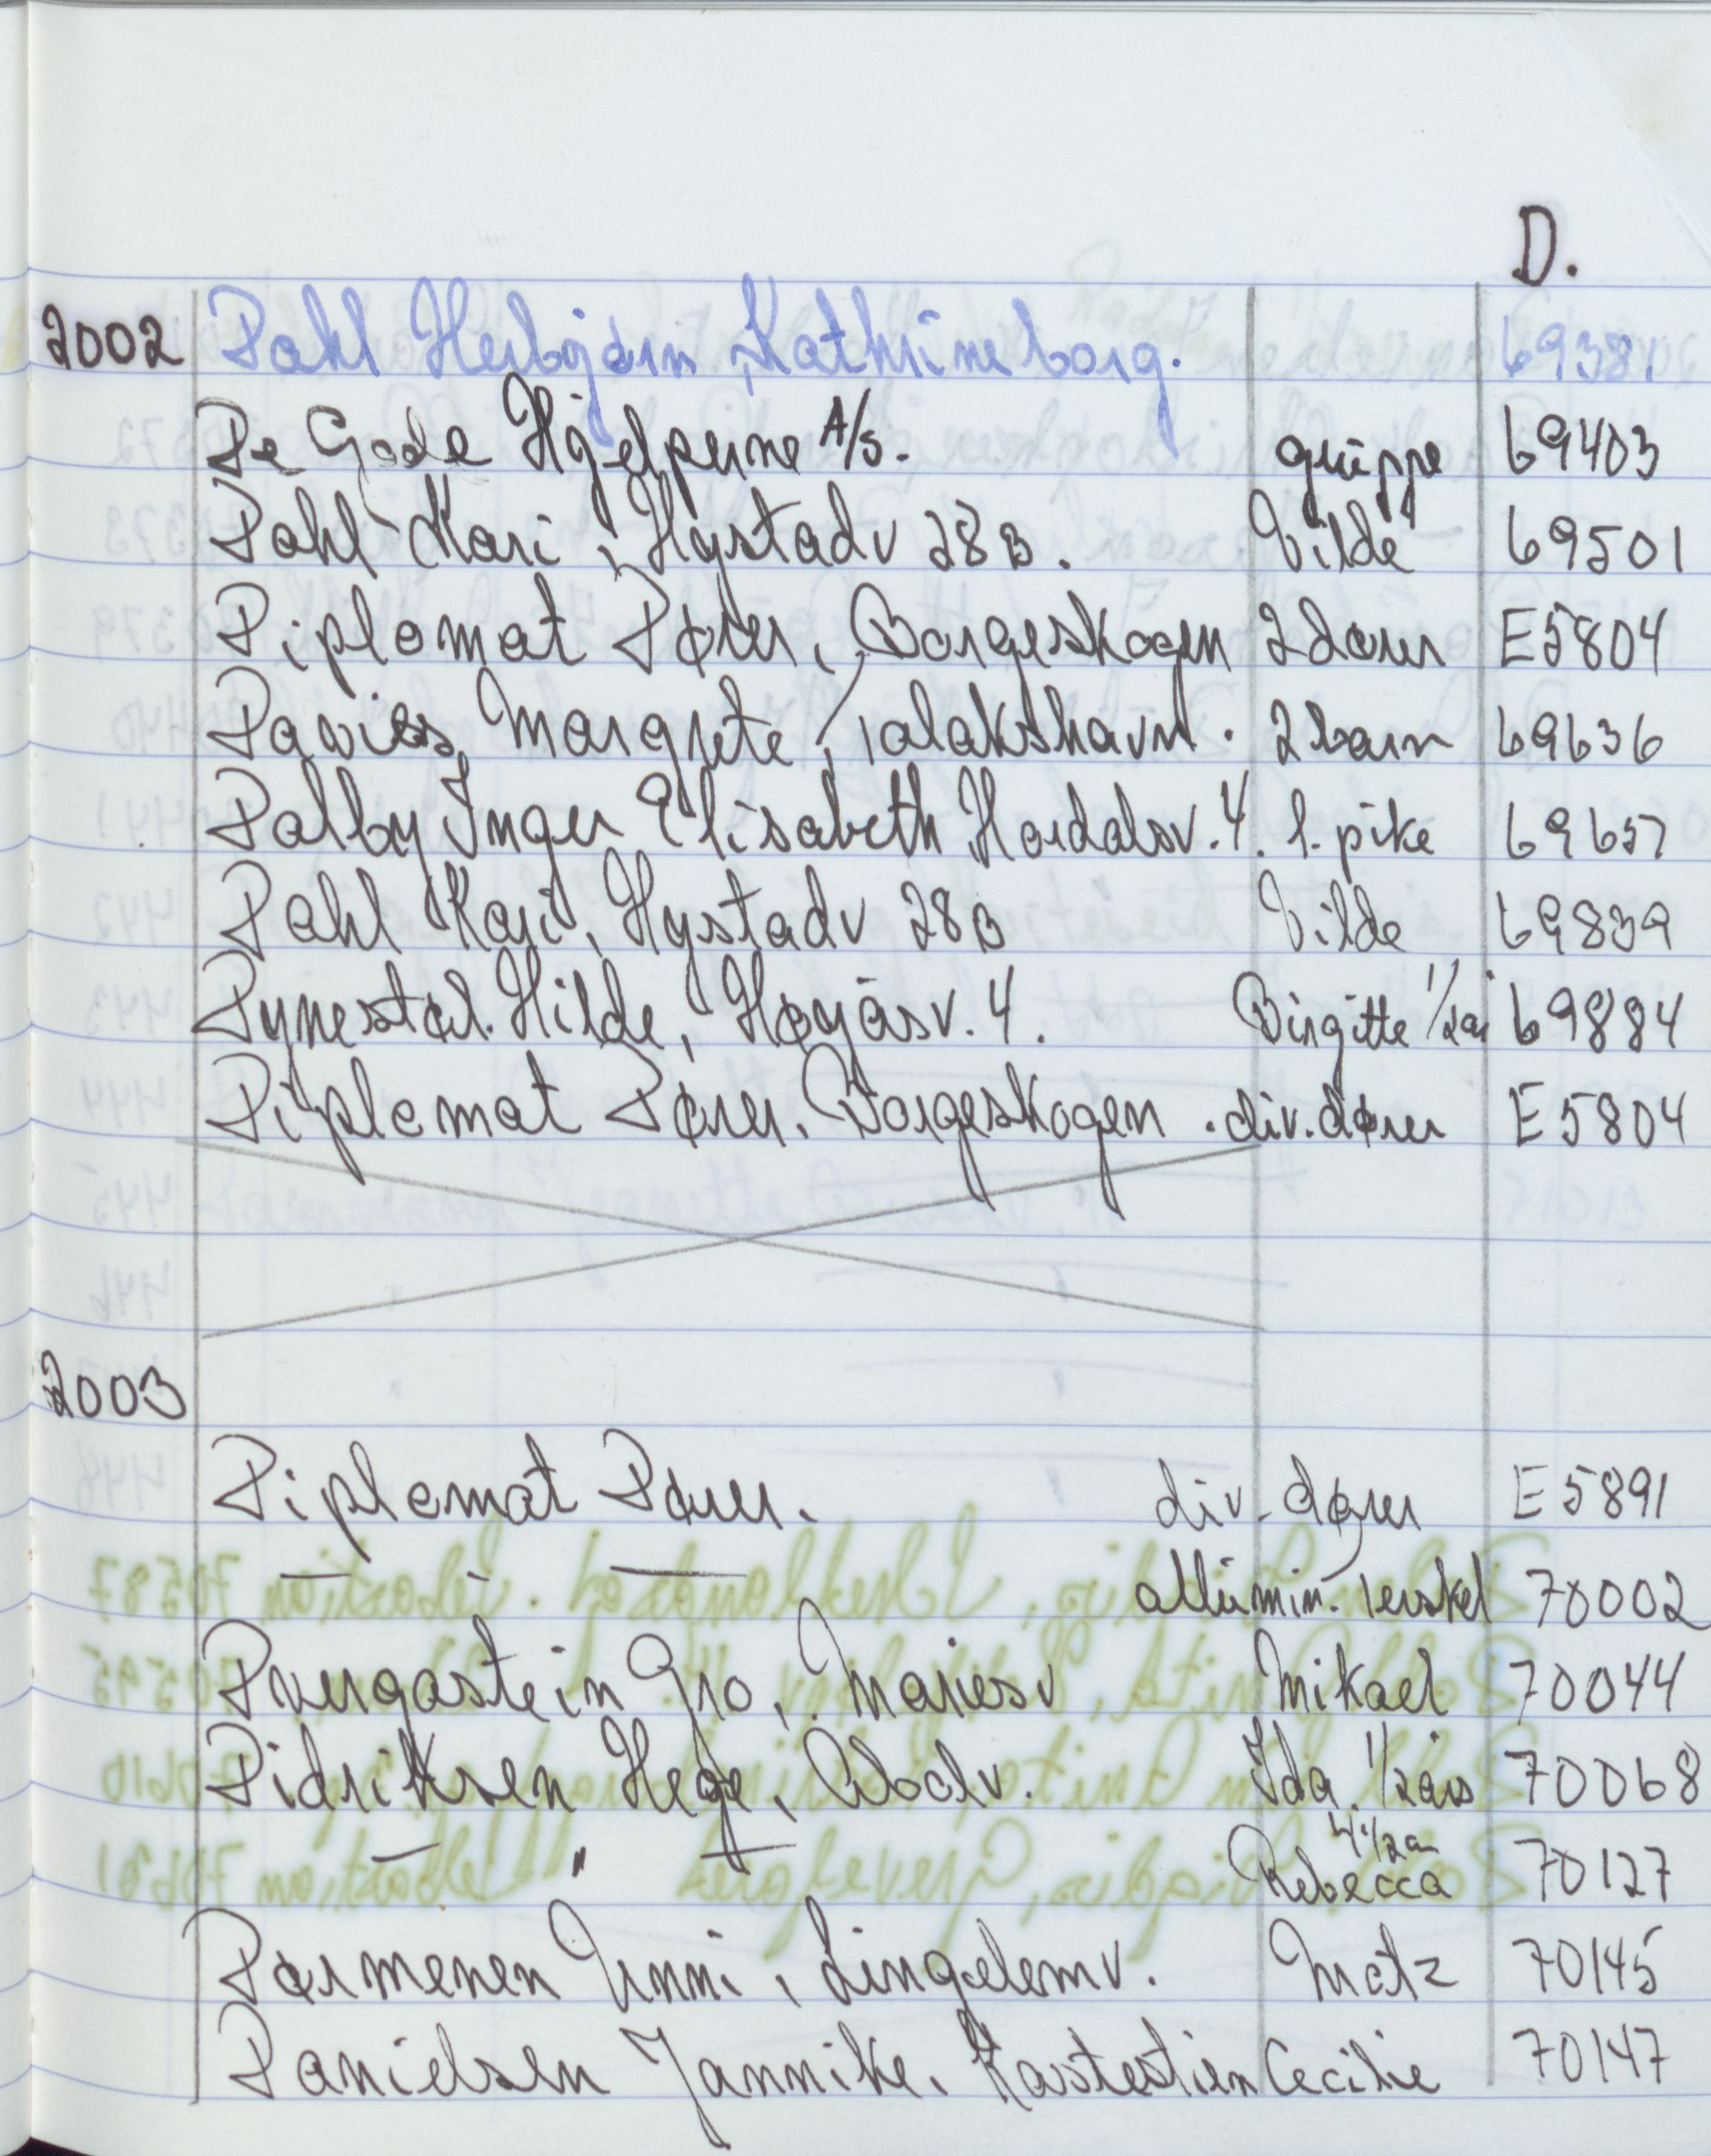 D.
2002 Dahl Herbjørn, Kathrineborg. 69381
De Gode Hjelperne A/S. gruppe 69403
Dahl Kari, Hystadv 28B. Vilde 69501
Diplomat Dører, Borgeskogen 2 dører E5804
Davies, Margrete, 2 barn 69636
Dalby Inger Elisabeth Hordalsv. 4. 1. pike 69657
Dahl Kari, Hystadv 28B Vilde 69839
Dynestøl. Hilde, Høyåsv. 4. Birgitte 1/2 år 69884
Diplomat Dører. Borgeskogen. div. dører E5804
2003
Diplomat Dører. div. dører E5891
— - — allumin. terskel 70002
Dvergastein Gro, Mariesv Mikael 70044
Didriksen Hege, Ida 1/2 års 70068
— " — Rebecca 4 1/2 år 70127
Dørmenen Unni, Lingelemv. Matz 70145
Danielsen Jannike. Kastestien Cecilie 70147